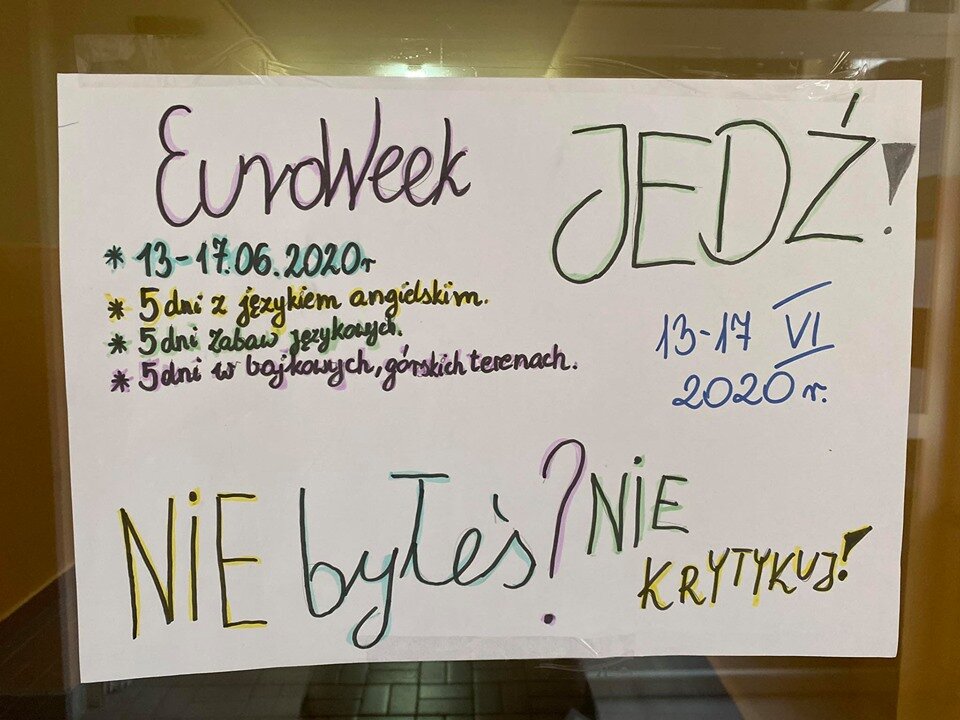 EuroWeek
* 13-17.06.2020r
* 5 dni z językiem angielskim.
* 5 dni zabaw językowych.
* 5 dni w bajkowych, górskich terenach.
JEDŹ!
13-17 VI
2020 r.
NiE byłeś?
NiE
KRYTYKUJ!